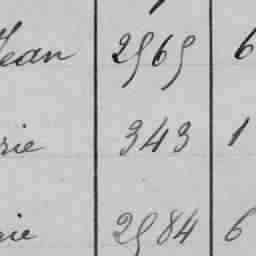 Jean 2569 6
rie 343 1
rie 2584 6